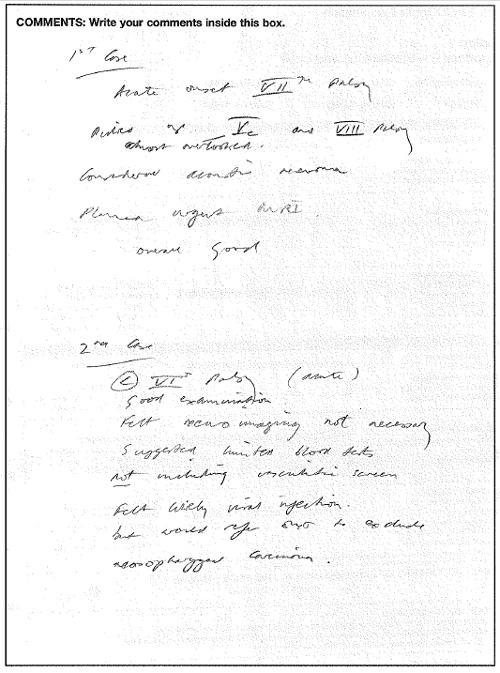 COMMENTS: Write your comments inside this box.
1ST Case
Acute onset VIITH palsy
of Vc and VIII palsy
almost overlooked.
Considered acoustic neuroma
Planned urgent MRI.
overall Good
2nd Case
(L) VITH palsy (acute)
Good examination
Felt neuroimaging not necessary
Suggested limited blood tests
not including vasculitic screen
Felt likely viral infection.
but would refer ENT to exclude
nasopharyngeal carcinoma.